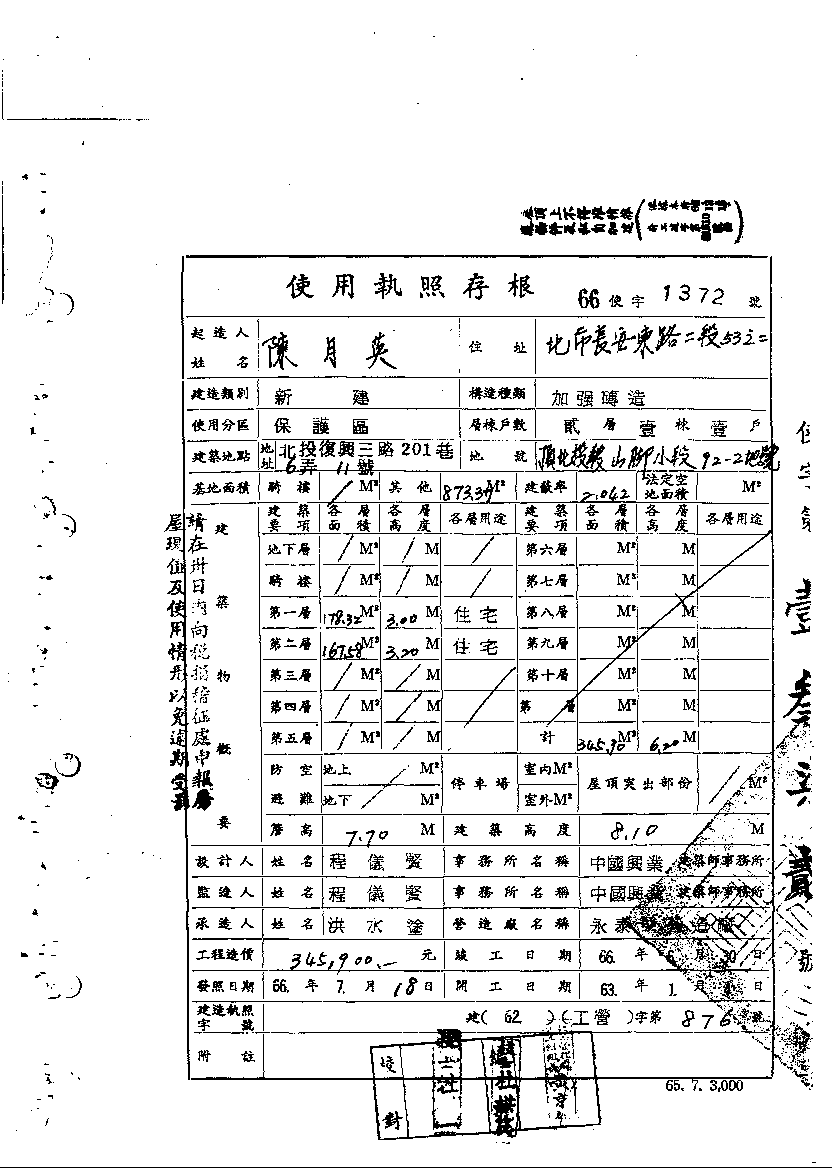 使用執照存根 66使字1372號
起造人姓名 陳月英 住址 北市長安東路二段53之二
建造類別 新建 構造種類 加强磚造
使用分區 保護區 層棟戶數 貳層壹棟壹戶
建築地點 地址 北投復興三路201巷6弄11號 地號 頂北投段山脚小段92-2地號
基地面積 騎樓 / M² 其他 M² 建蔽率 法定空地面積 M²
建築物概要
建築要項 各層面積 各層高度 各層用途 建築要項 各層面積 各層高度 各層用途
地下層 / M² / M / 第六層 M² M
騎樓 / M² / M / 第七層 M² M
第一層 178.32 M² 3.00 M 住宅 第八層 M² M
第二層 167.58 M² 3.20 M 住宅 第九層 M² M
第三層 / M² / M / 第十層 M² M
第四層 / M² / M 第 層 M² M
第五層 / M² / M 計 345.90 M² 6.20 M
防空避難 地上 地下 / M² M² 停車場 室內M² 室外M² 屋頂突出部份 / M²
簷高 7.70 M 建築高度 8.10 M
設計人 姓名 程儀賢 事務所名稱 中國興業建築師事務所
監造人 姓名 程儀賢 事務所名稱 中國興業建築師事務所
承造人 姓名 洪水塗 營造廠名稱 永泰
工程造價 345,900.— 元 竣工日期 66.年6月30日
發照日期 66.年7.月18日 開工日期 63.年1.月 日
建造執照字號 建(62)(工營)字第876號
附註
65.7.3,000
校對
請在卅日內向稅捐稽征處申報房
屋現值及使用情形以免逾期受罰